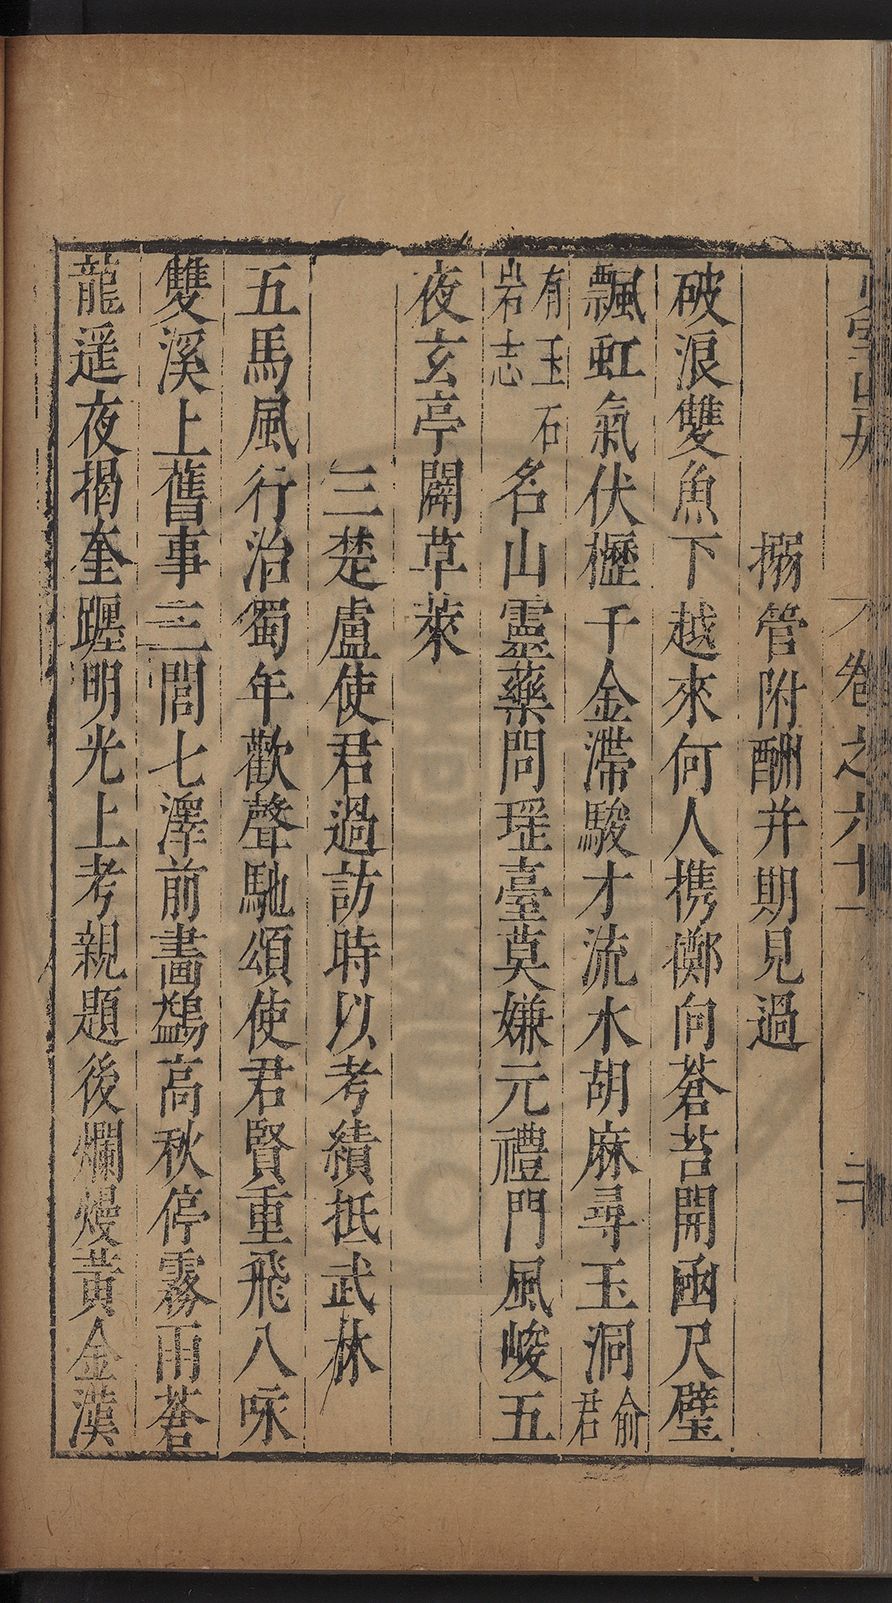 卷之六十一
二十
搦管附酬并期見過
破浪雙魚下越來何人携擲向蒼苔開函尺璧
飄虹氣伏櫪千金滯駿才流水胡麻尋玉洞俞君
有玉石岩志名山靈藥問瑶臺莫嫌元禮門風峻五
夜玄亭闢草萊
三楚盧使君過訪時以考績抵武林
五馬風行治蜀年歡聲馳頌使君賢重飛八咏
雙溪上舊事三閭七澤前畵鷁高秋停霧雨蒼
龍遥夜揭奎躔明光上考親題後爛熳黃金漢